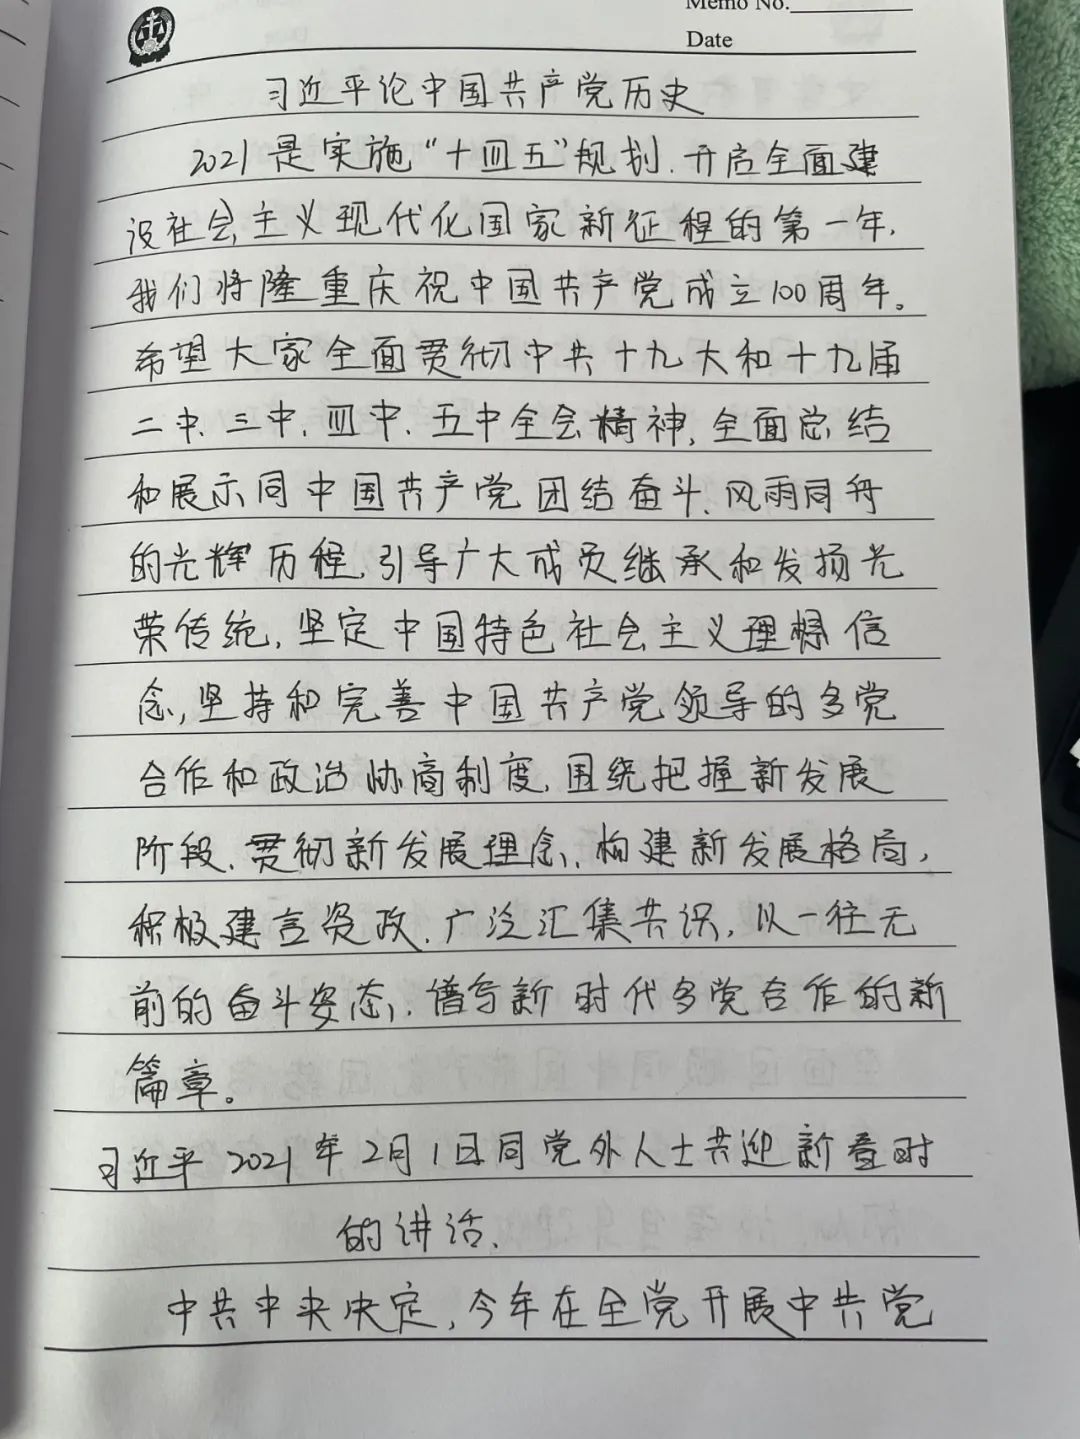 Memo No.
Date
习近平论中国共产党历史
2021是实施“十四五”规划、开启全面建
设社会主义现代化国家新征程的第一年,
我们将隆重庆祝中国共产党成立100周年。
希望大家全面贯彻中共十九大和十九届
二中、三中、四中、五中全会精神,全面总结
和展示同中国共产党团结奋斗、风雨同舟
的光辉历程,引导广大成员继承和发扬光
荣传统,坚定中国特色社会主义理想信
念,坚持和完善中国共产党领导的多党
合作和政治协商制度,围绕把握新发展
阶段、贯彻新发展理念、构建新发展格局,
积极建言资政、广泛汇集共识,以一往无
前的奋斗姿态,谱写新时代多党合作的新
篇章。
习近平2021年2月1日同党外人士共迎新春时
的讲话、
中共中央决定,今年在全党开展中共党